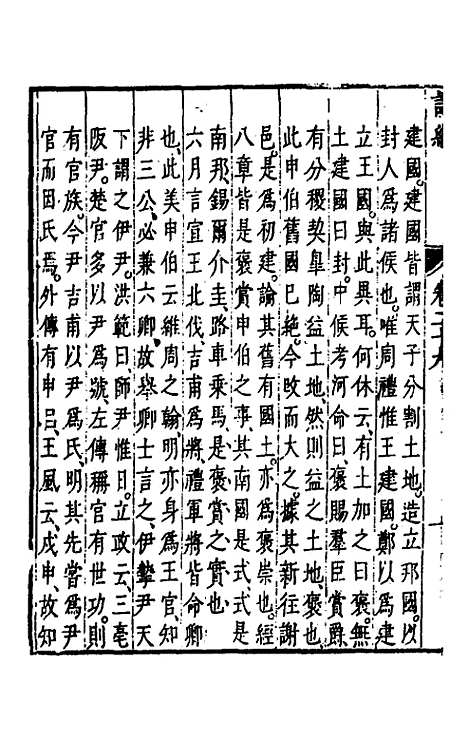 建國。建國皆謂天子分割土地。造立邦國。以
封人爲諸侯也。唯周禮惟王建國。鄭以爲建
立王國。與此異耳。何休云、有土加之曰褒。無
土建國曰封。中候考河命曰褒賜羣臣賞爵
有分稷契臯陶益土地。然則益之土地、褒也
此申伯舊國已絶。今改而大之。據其新往謝
邑。是爲初建。論其舊有國土。亦爲褒崇也。經
八章皆是褒賞申伯之事。其南國是式式是
南邦。錫爾介圭、路車乗馬。是褒賞之實也
六月言宣王北伐、吉甫爲將。禮軍將皆命卿
也。此美申伯云維周之翰。明亦身爲王官。知
非三公、必兼六卿。故舉卿士言之。伊摯尹天
下謂之伊尹。洪範曰師尹惟日。立政云、三亳
阪尹。楚官多以尹爲號。左傳稱官有世功。則
有官族。今尹吉甫以尹爲氏。明其先嘗爲尹
官而因氏焉。外傳有申呂。王風云、戍申。故知